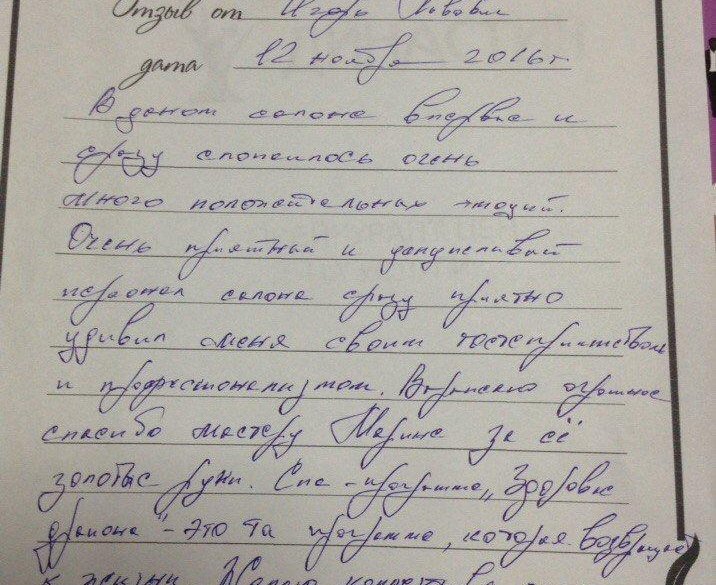 Отзыв от Игорь Львович
дата 12 ноября 2016 г
В даном салоне впервые и
сразу сложилось очень
много положительных эмоций.
Очень приятный и
персонал салона сразу приятно
удивил меня своим гостеприимством
и профессионализмом. Выражаю огромное
спасибо мастеру Марине за её
золотые руки. Спа-программа „Здоровье
дракона" - это та программа, которая возвращает
к жизни